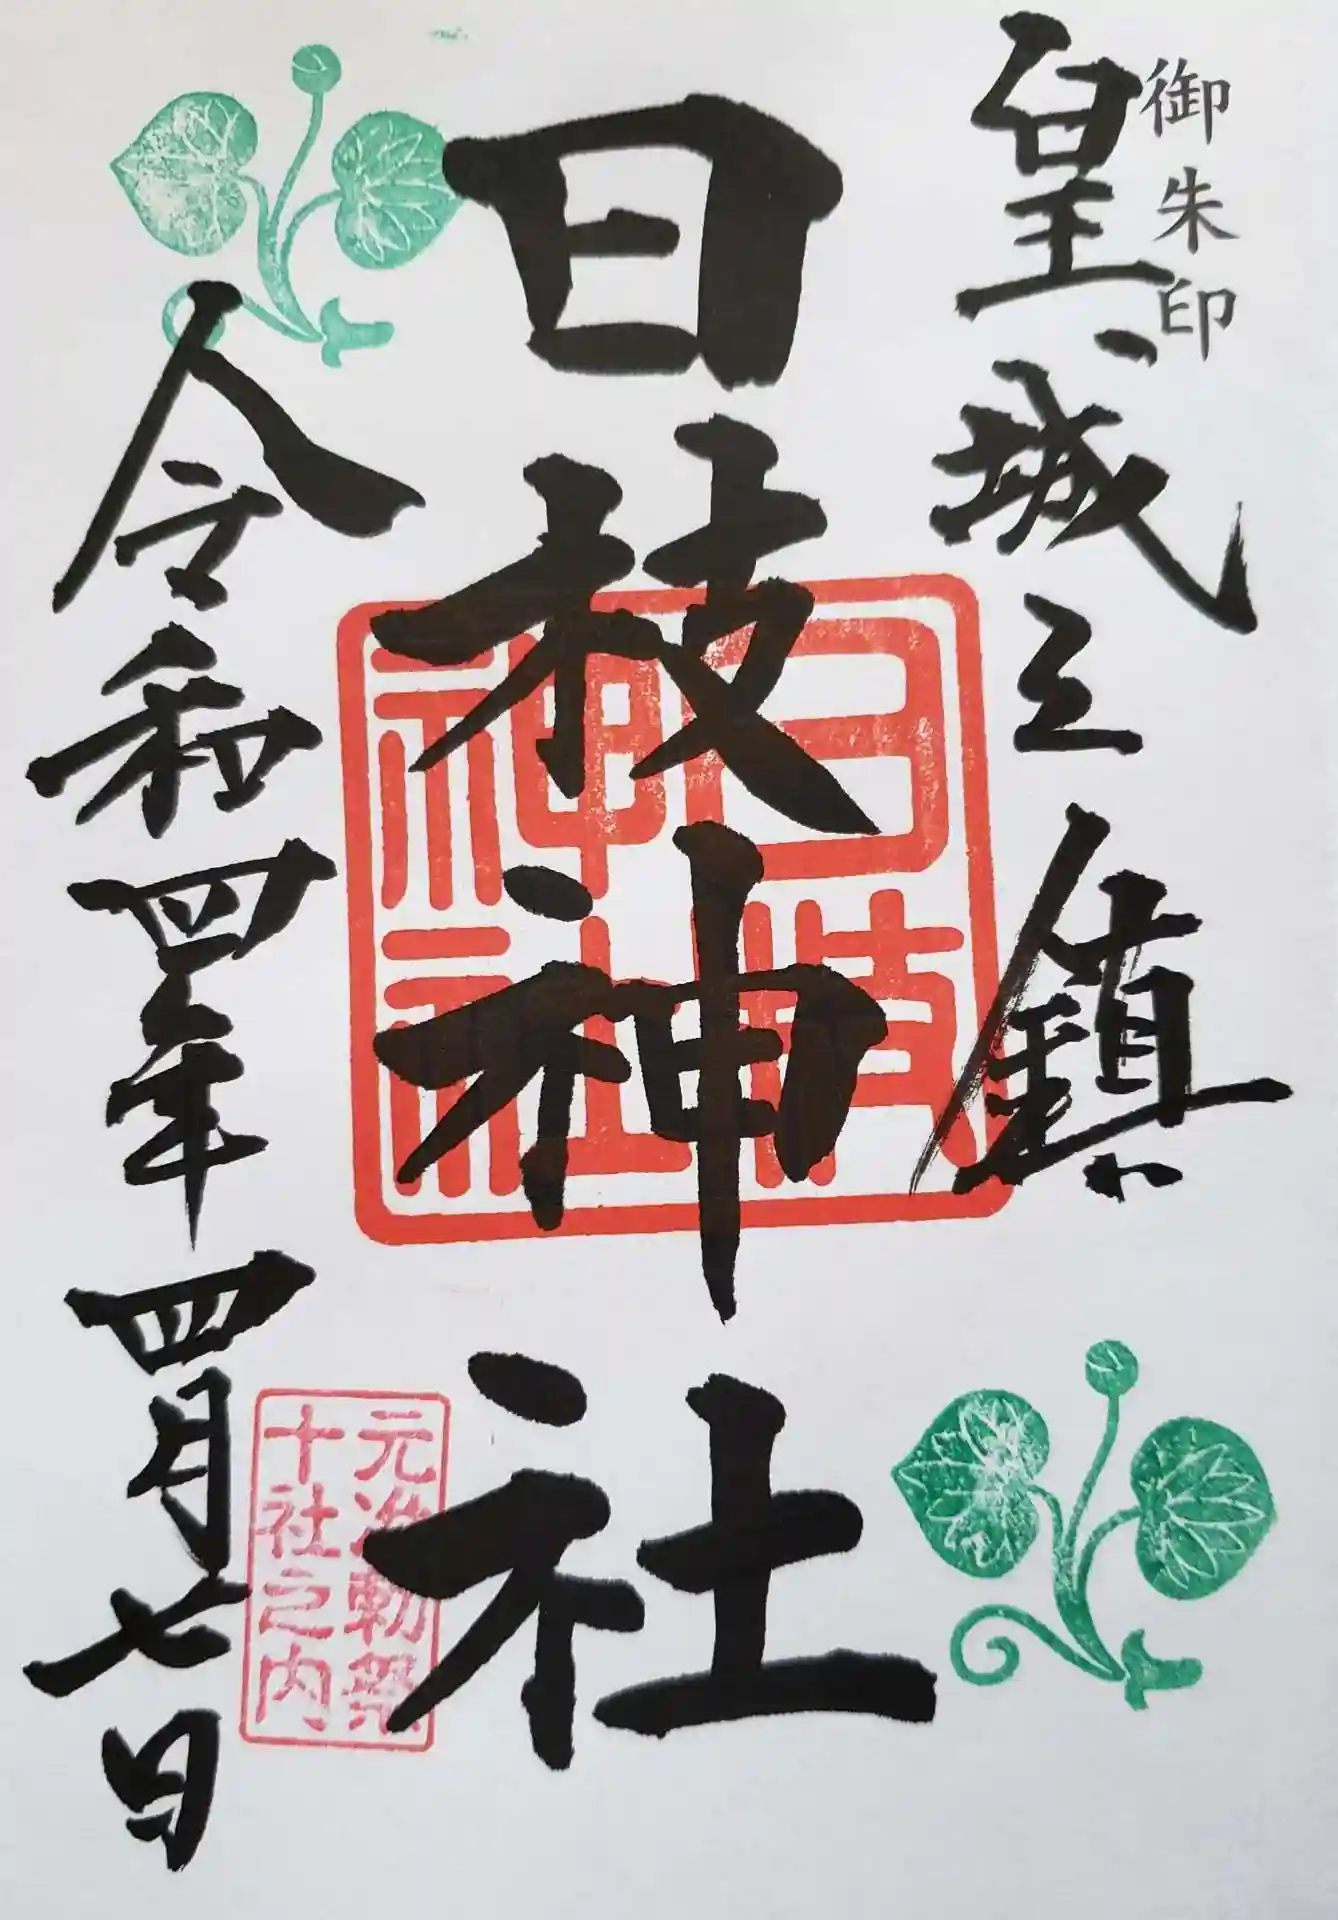 御朱印
皇城之鎮
日枝神社
日枝
神社
元准勅祭
十社之内
令和四年四月七日